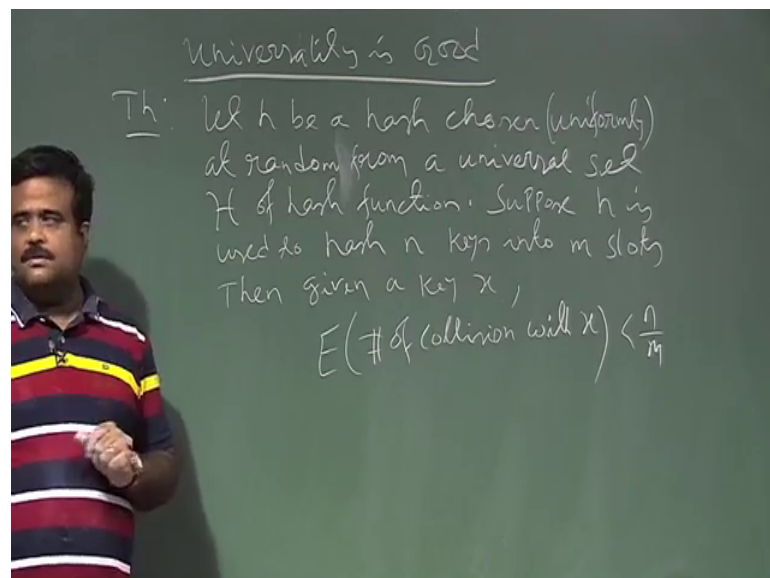 Universality is Good
Th: Let h be a hash chosen (uniformly)
at random from a universal set
H of hash function. Suppose h is
used to hash n keys into m slots
Then given a key x,
E(# of collision with x) < n/m